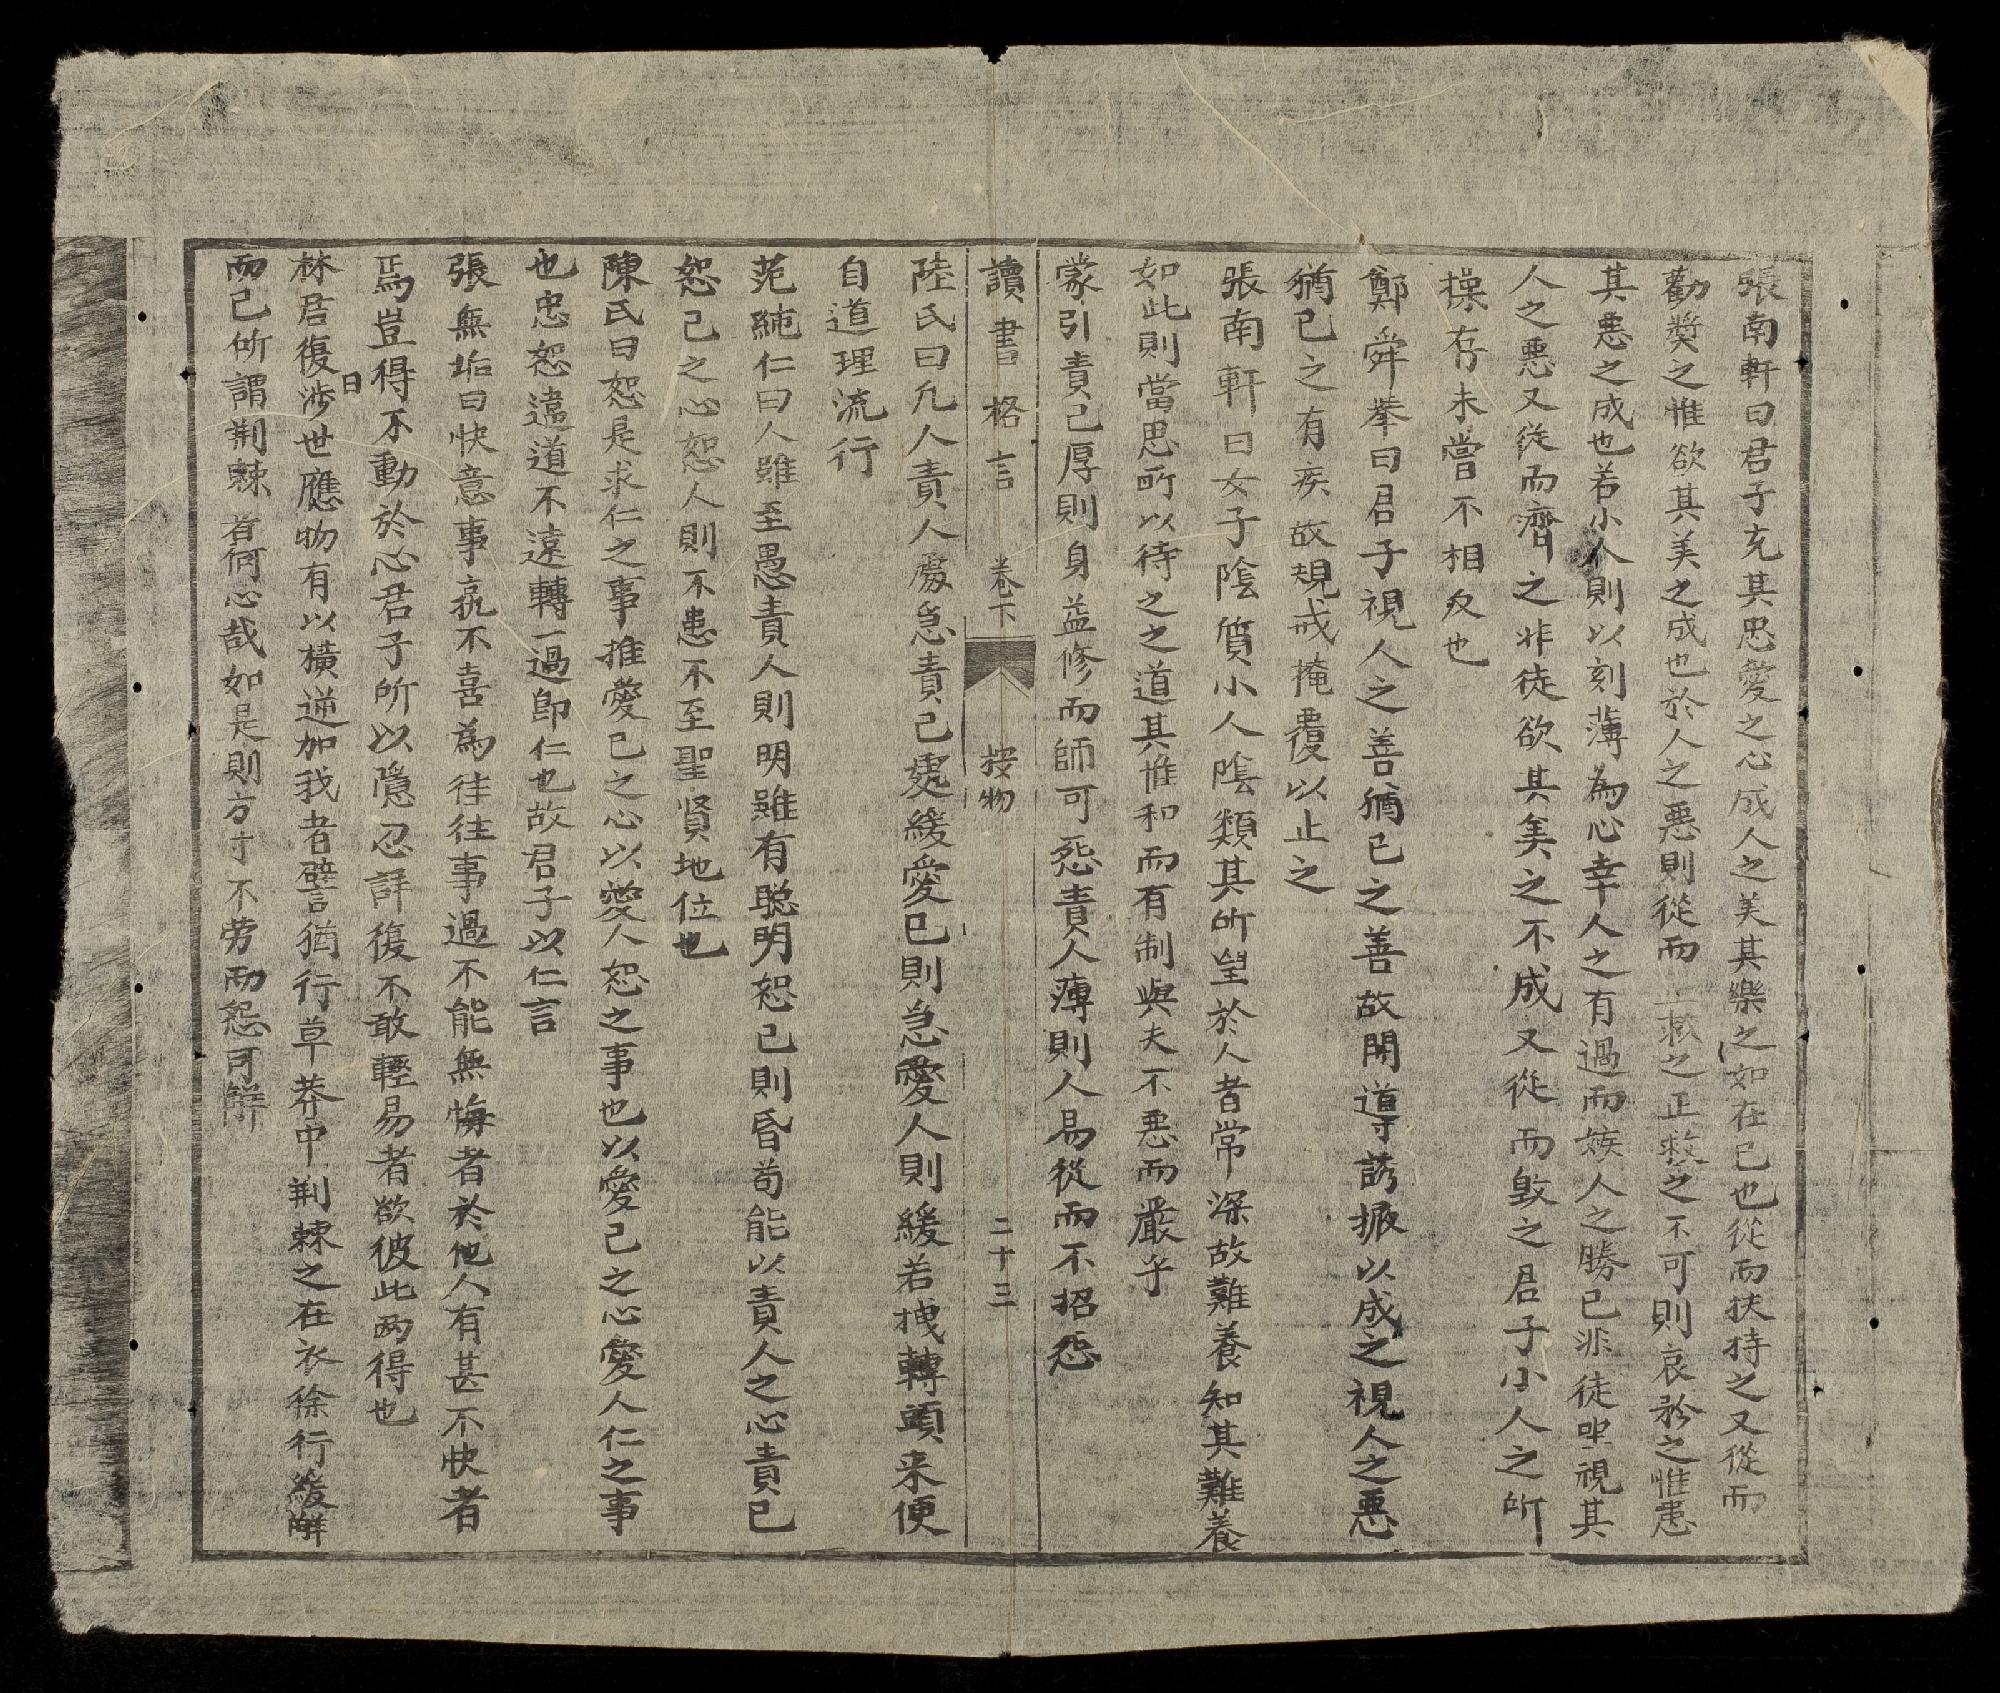 張南軒曰君子充其忠愛之心成人之美其樂之如在己也從而扶持之又從而
勸奬之惟欲其美之成也於人之惡則從而正救之正救之不可則哀矜之惟恐
其惡之成也若小人則以刻薄為心幸人之有過而嫉人之勝己非徒坐視其
人之惡又從而濟之非徒欲其美之不成又從而毀之君子小人之所
操存未嘗不相反也
鄭舜擧曰君子視人之善猶己之善故開導誘掖以成之視人之惡
猶己之有疾故規戒掩覆以止之
張南軒曰女子陰質小人陰類其所望於人者常深故難養知其難養
如此則當思所以待之之道其惟和而有制與夫不惡而嚴乎
蒙引責己厚則身益修而師可怨責人薄則人易從而不招怨
讀書格言 卷下 接物 二十三
陸氏曰凡人責人處急責己處緩愛己則急愛人則緩若拽轉頭來便
自道理流行
范純仁曰人雖至愚責人則明雖有聰明恕己則昏苟能以責人之心責己
恕己之心恕人則不患不至聖賢地位也
陳氏曰恕是求仁之事推愛己之心以愛人恕之事也以愛己之心愛人仁之事
也忠恕違道不遠轉一過即仁也故君子以仁言
張無垢曰快意事孰不喜為往往事過不能無悔者於他人有甚不快者
焉豈得不動於心君子所以隱忍詳復不敢輕易者欲彼此兩得也
林君復曰涉世應物有以橫逆加我者譬猶行草莽中荆棘之在衣徐行緩觧
而已所謂荆棘者何心哉如是則方寸不勞而怨可觧